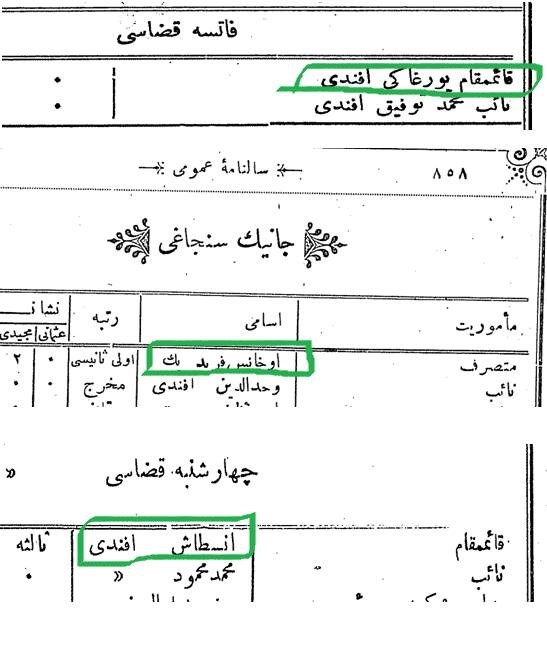 فاتسه قضاسی
قائممقام یورغاکی افندی
نائب محمد توفیق افندی
٨٥٨ سالنامۀ عمومی
جانیك سنجاغی
مأموریت اسامی رتبه نشانـ
عثمانی مجیدی
متصرف اوخانس فرید بك اولی ثانیسی ٠ ٢
نائب وحدالدین افندی مخرج ٠ ٠
چهارشنبه قضاسی »
قائممقام انسطاش افندی ثالثه
نائب محمد محمود » ٠